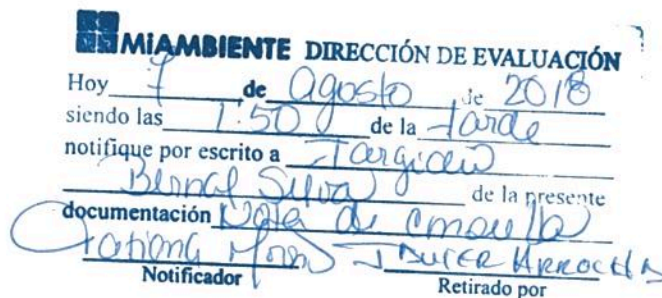 MiAMBIENTE DIRECCIÓN DE EVALUACIÓN
Hoy 7 de agosto de 2018
siendo las 1:50 de la tarde
notifique por escrito a
Bernal Silva de la presente
documentación Nota de
Tatiana JAVIER ARROCHA
Notificador Retirado por